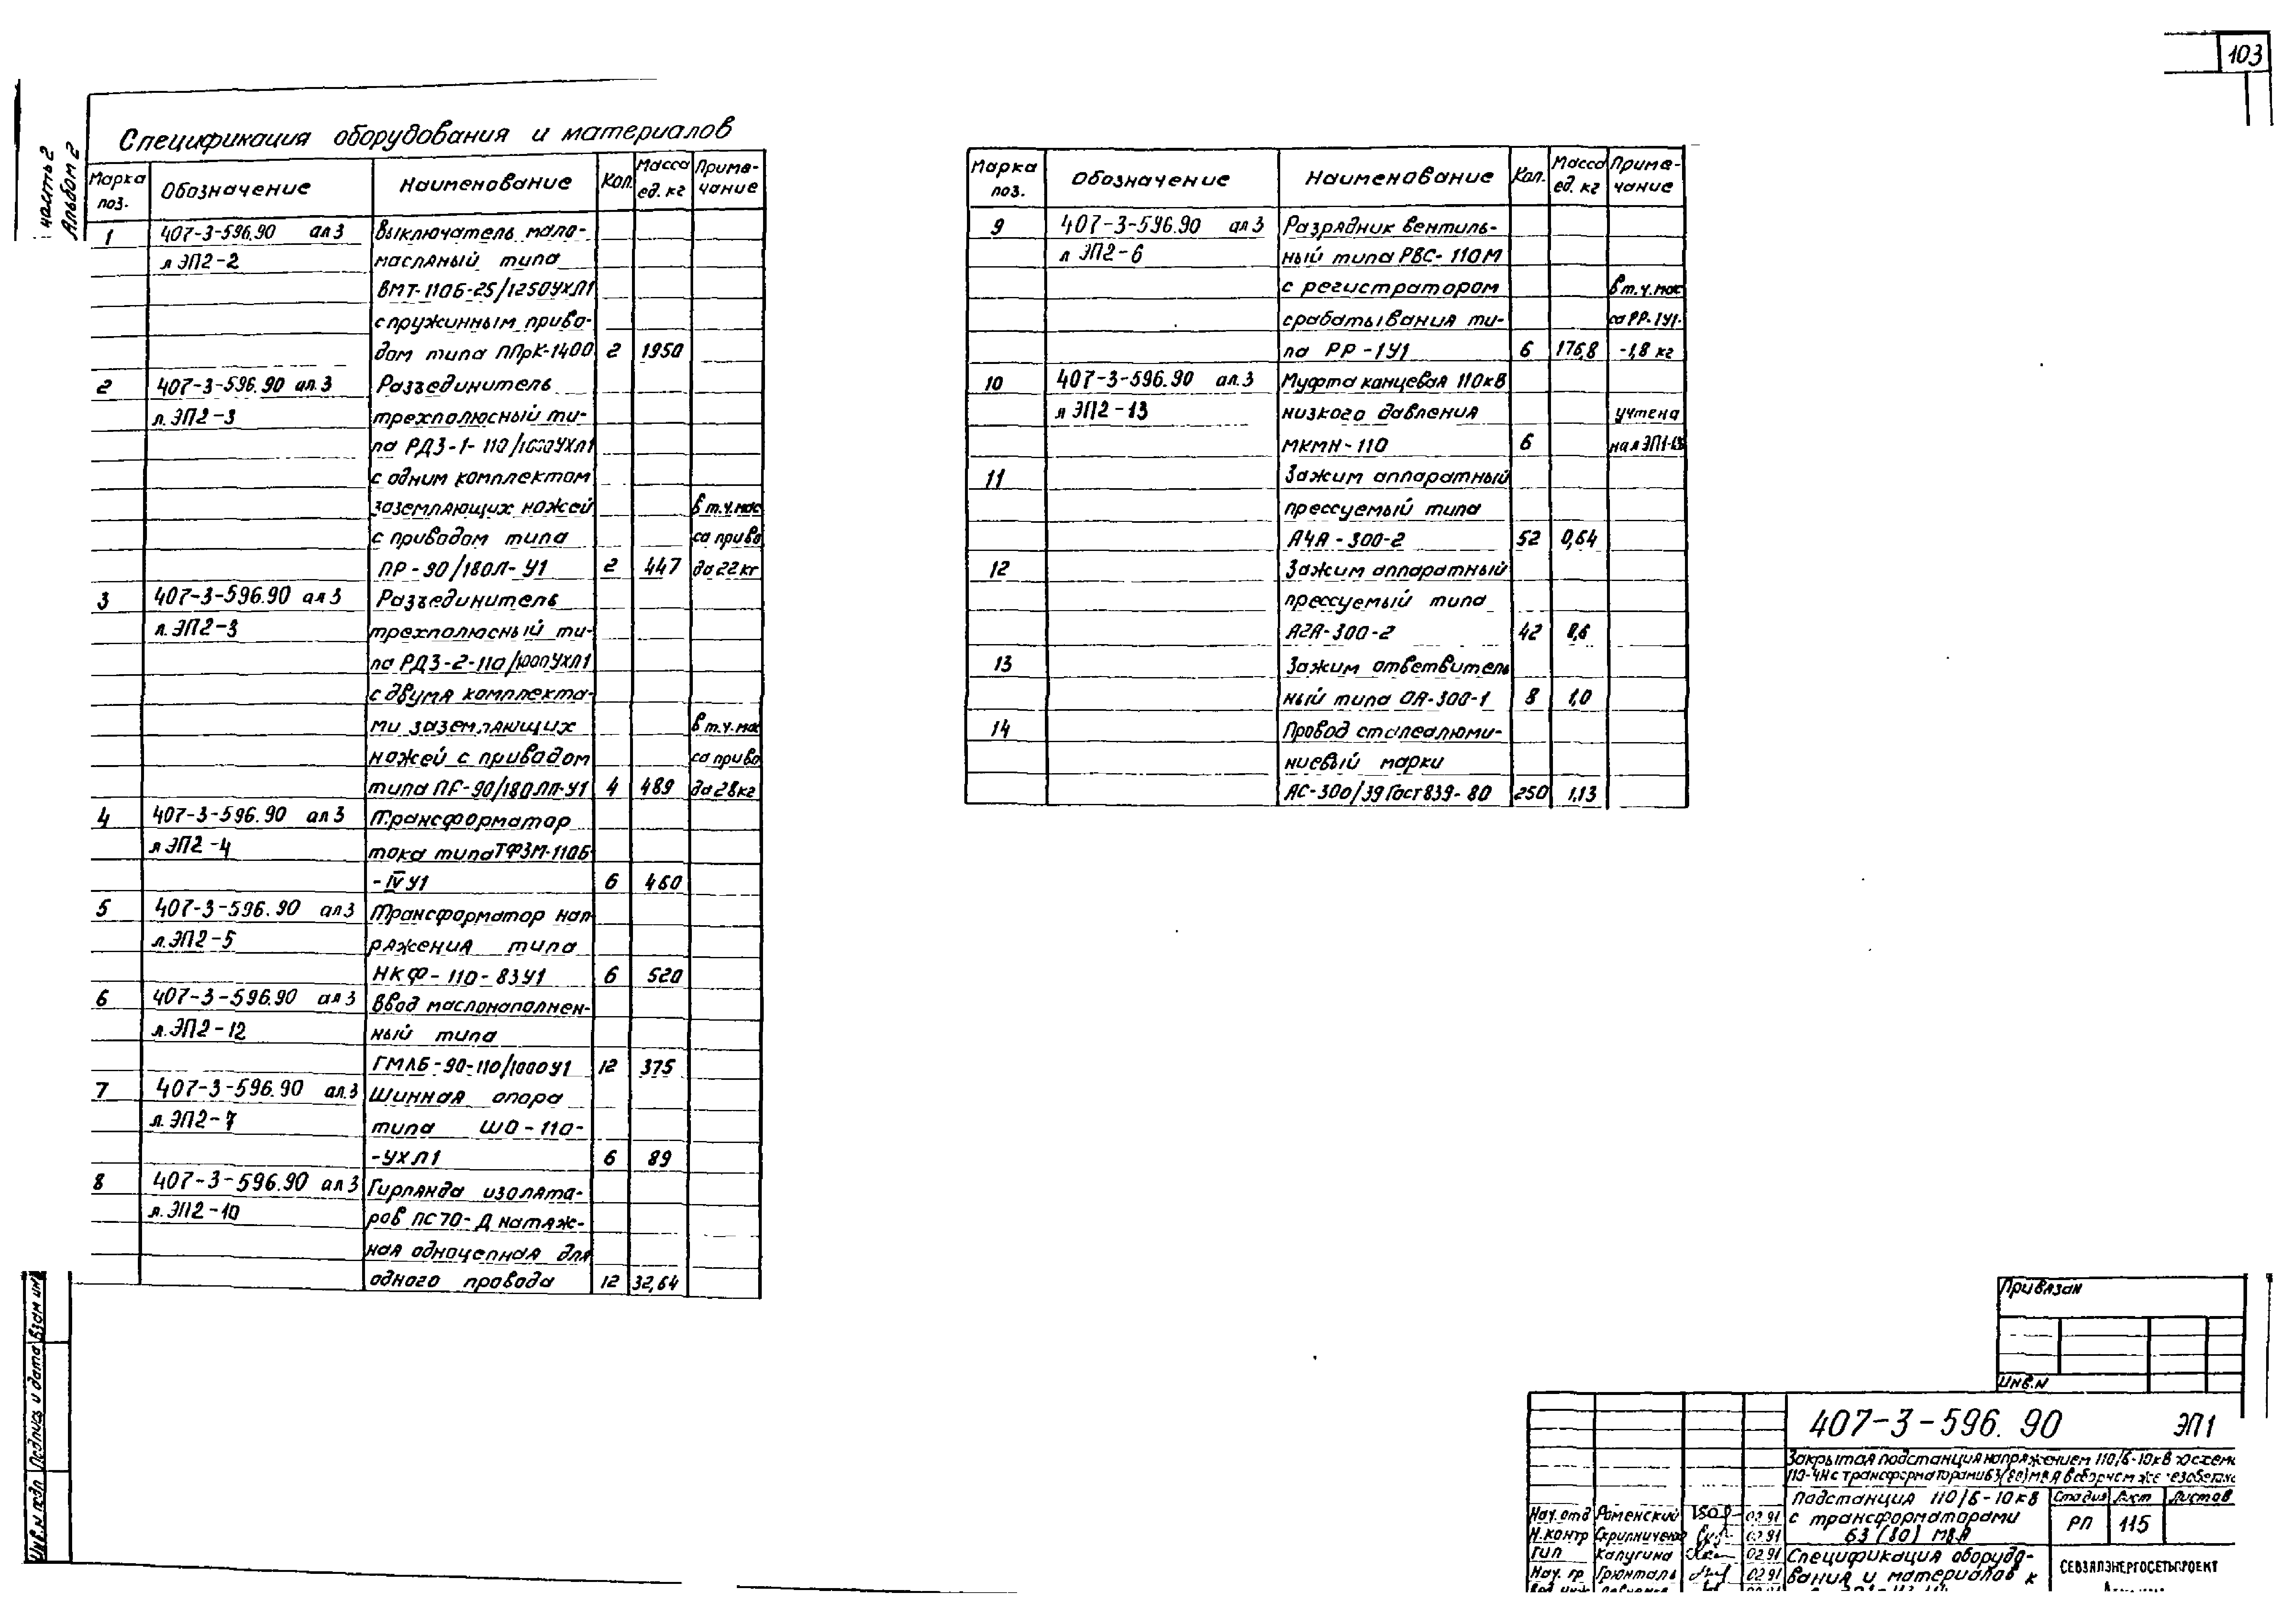 103
часть 2
Альбом 2
Спецификация оборудования и материалов
Марка поз. Обозначение Наименование Кол. Масса ед. кг Примечание
1 407-3-596.90 ал 3 Выключатель мало-
л ЭП2-2 масляный типа
ВМТ-110Б-25/1250УХЛ1
с пружинным приво-
дом типа ППрК-1400 2 1950
2 407-3-596.90 ал.3 Разъединитель
л. ЭП2-3 трехполюсный ти-
па РДЗ-1-110/1000УХЛ1
с одним комплектом
заземляющих ножей в т.ч. мас
с приводом типа са приво
ПР-90/180Л-У1 2 447 да 22 кг
3 407-3-596.90 ал 3 Разъединитель
л. ЭП2-3 трехполюсный ти-
па РДЗ-2-110/1000УХЛ1
с двумя комплекта-
ми заземляющих в т.ч. мас
ножей с приводом са приво
типа ПР-90/180ЛП-У1 4 489 да 28 кг
4 407-3-596.90 ал 3 Трансформатор
л ЭП2-4 тока типа ТФЗМ-110Б-
-IV У1 6 460
5 407-3-596.90 ал 3 Трансформатор нап
л. ЭП2-5 ряжения типа
НКФ-110-83У1 6 520
6 407-3-596.90 ал 3 Ввод маслонаполнен-
л. ЭП2-12 ный типа
ГМЛБ-90-110/1000У1 12 375
7 407-3-596.90 ал.3 Шинная опора
л. ЭП2-7 типа ШО-110-
-УХЛ1 6 89
8 407-3-596.90 ал 3 Гирлянда изолято-
л. ЭП2-10 ров ПС70-Д натяж-
ная одноцепная для
одного провода 12 32,64
Марка поз. Обозначение Наименование Кол. Масса ед. кг Примечание
9 407-3-596.90 ал 3 Разрядник вентиль-
л ЭП2-6 ный типа РВС-110М
с регистратором в т.ч. мас
срабатывания ти- са РР-1У1-
па РР-1У1 6 176,8 -1,8 кг
10 407-3-596.90 ал.3 Муфта концевая 110кВ
л ЭП2-13 низкого давления учтена
МКМН-110 6 на л ЭП1-
11 Зажим аппаратный
прессуемый типа
А4А-300-2 52 0,64
12 Зажим аппаратный
прессуемый типа
А2А-300-2 42 0,6
13 Зажим ответвитель
ный типа ОА-300-1 8 1,0
14 Провод сталеалюми-
ниевый марки
АС-300/39 Гост 839-80 250 1,13
Привязан
Инв.N
407-3-596.90 ЭП1
Закрытая подстанция напряжением 110/6-10кВ по схеме
110-4Н с трансформаторами 63(80) МВА в сборном
Подстанция 110/6-10кВ
с трансформаторами
63 (80) МВА
Стадия Лист Листов
РП 115
Нач. отд Роменский 02.91
Н.контр 02.91
ГИП Калугина 02.91
Нач. гр Грюнталь 02.91
Спецификация оборудо-
вания и материалов к
СЕВЗАПЭНЕРГОСЕТЬПРОЕКТ
Инв.N подл Подпись и дата Взам инв